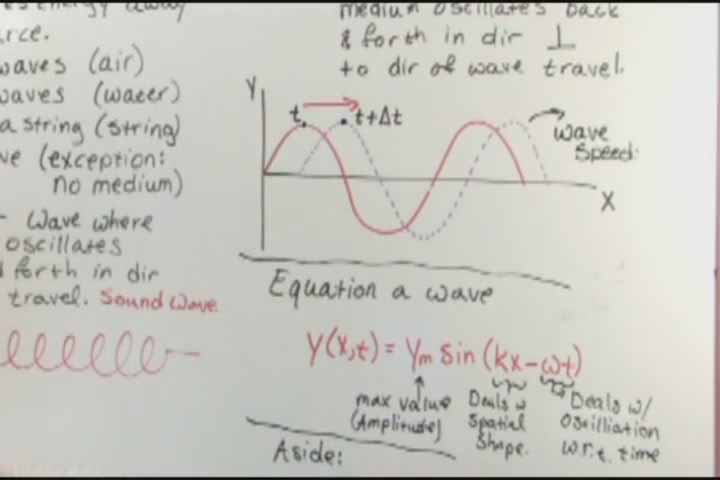 energy away
rce.
waves (air)
waves (water)
a string (string)
ve (exception:
no medium)
- Wave where
oscillates
forth in dir
travel. Sound wave.
medium oscillates back
& forth in dir ⊥
to dir of wave travel.
Y
t
t+Δt
wave
speed:
X
Equation a wave
y(x,t) = ym sin (kx-ωt)
max value
(Amplitude)
Deals w
Spatial
Shape.
Deals w/
Oscilliation
w.r.t. time
Aside: